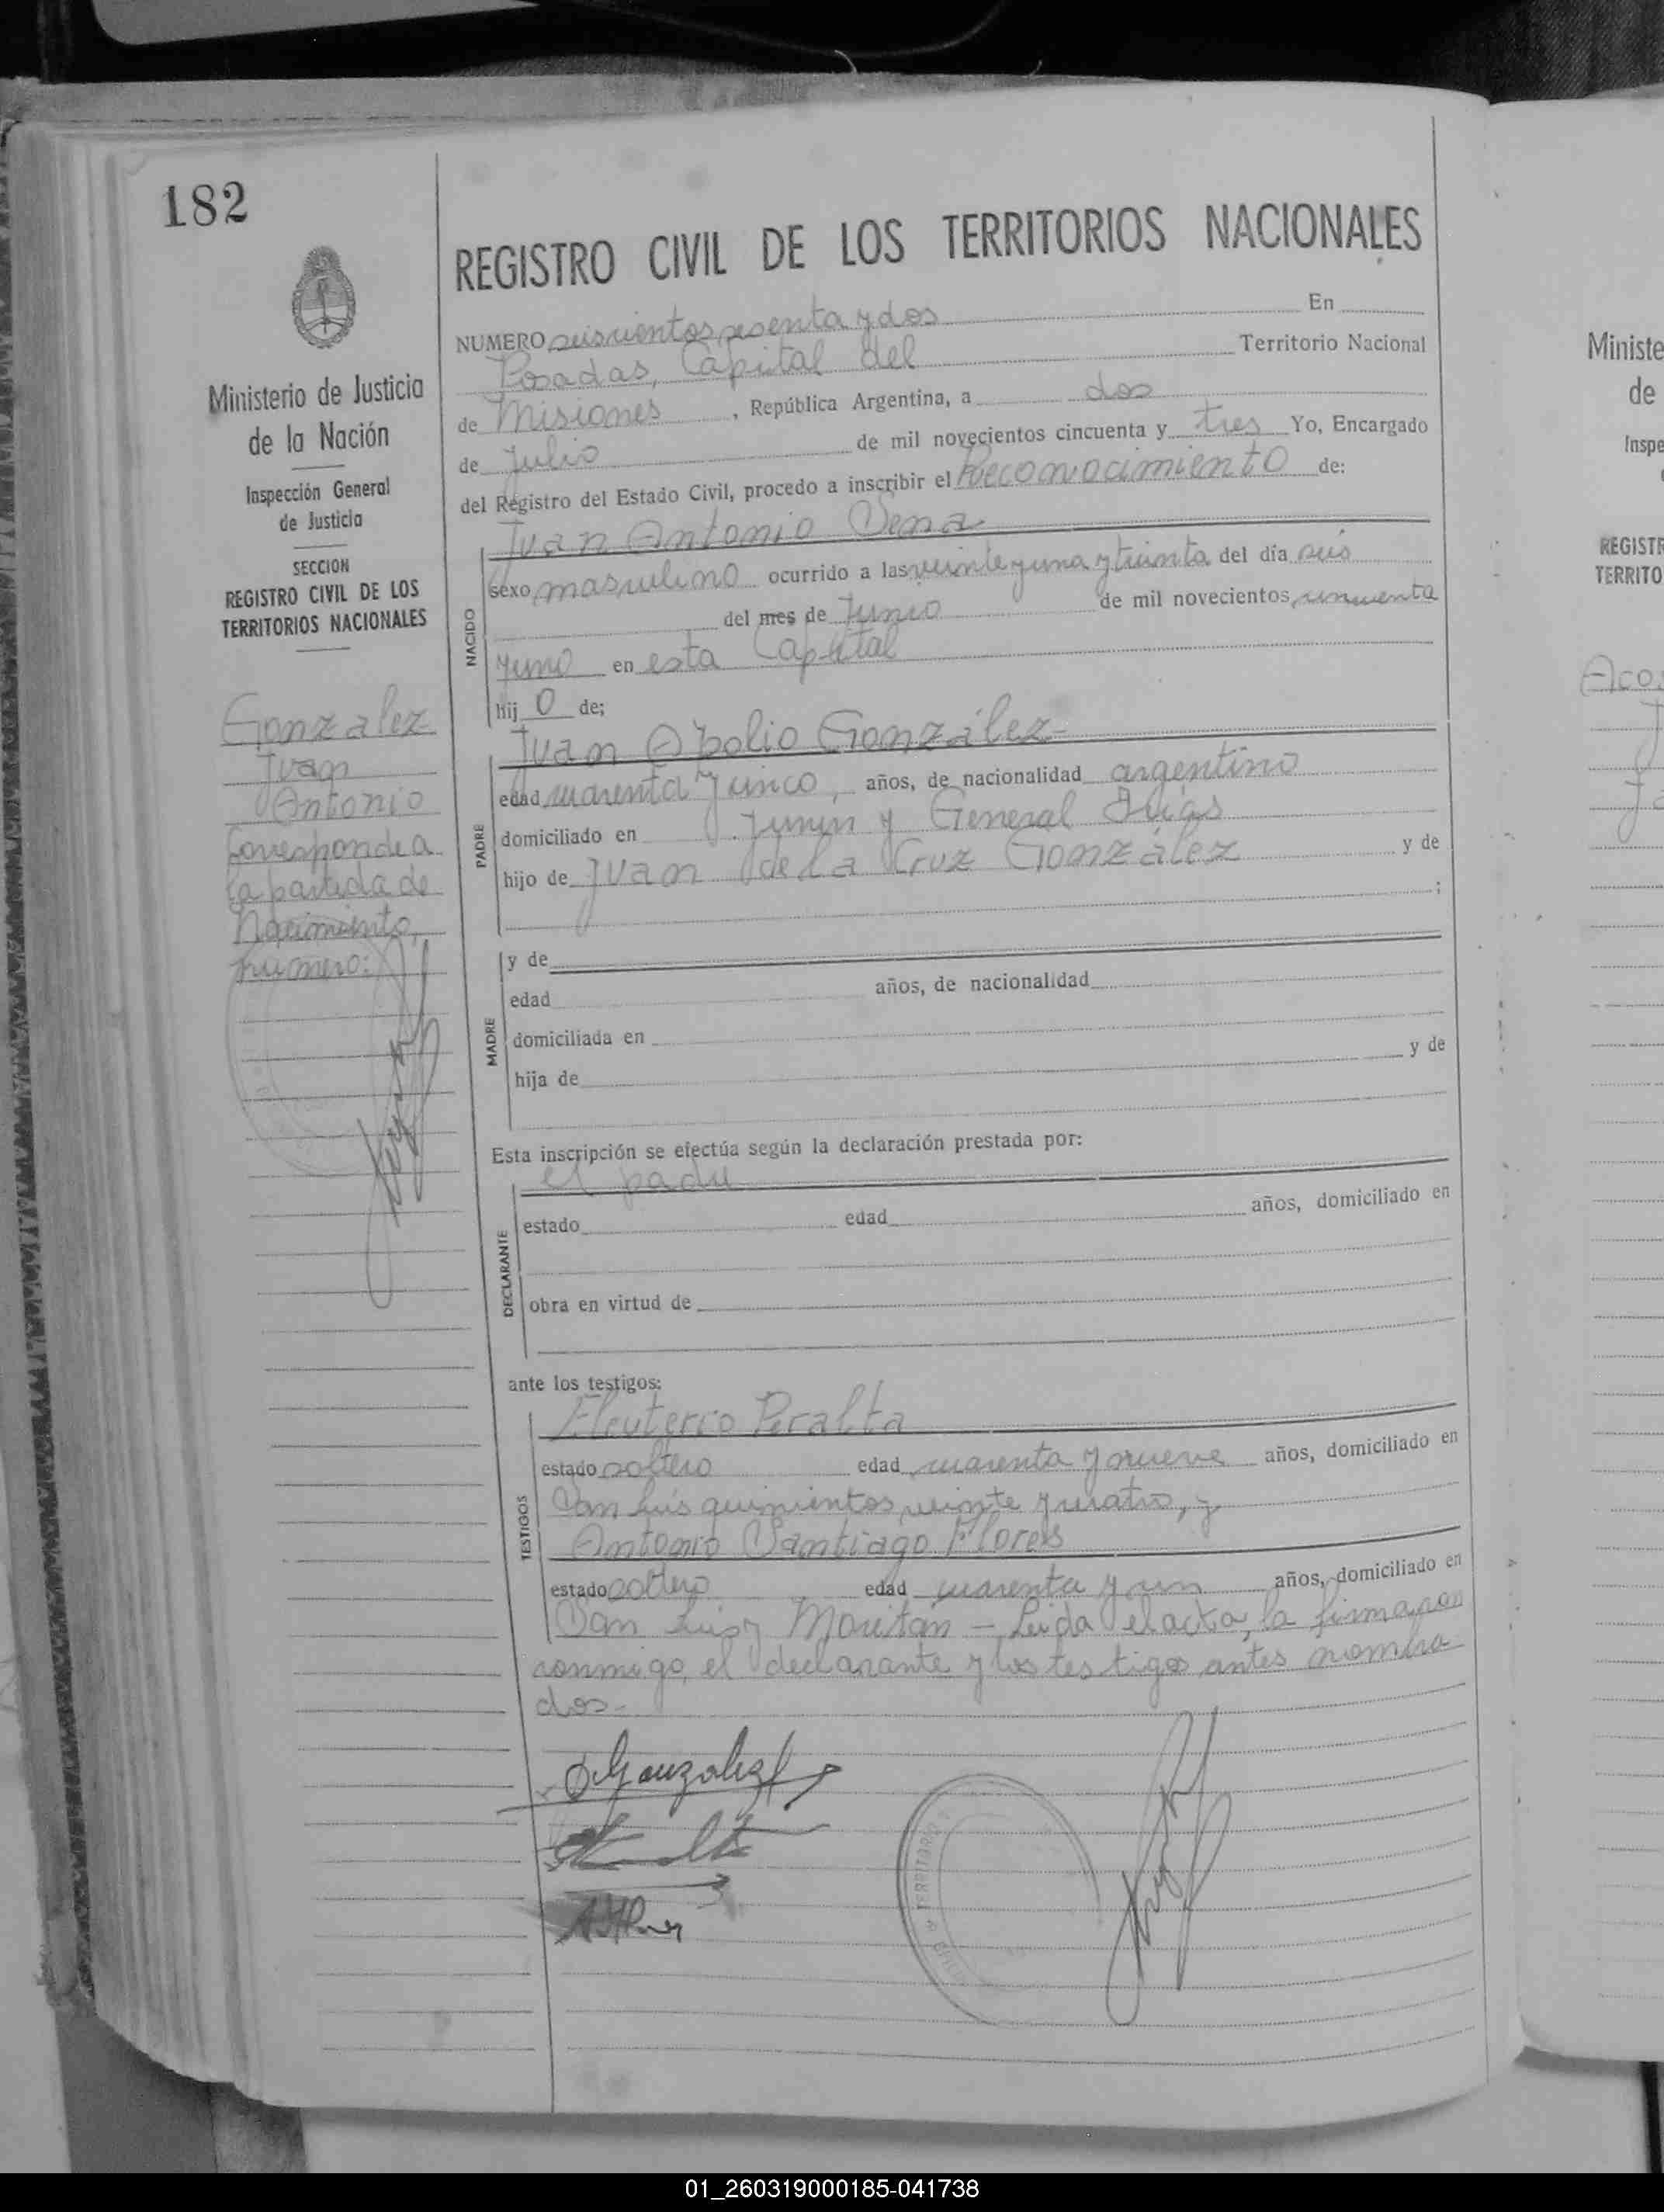 182
REGISTRO CIVIL DE LOS TERRITORIOS NACIONALES
Ministerio de Justicia
de la Nación
Inspección General
de Justicia
SECCION
REGISTRO CIVIL DE LOS
TERRITORIOS NACIONALES
Gonzalez
Juan
Antonio
Corresponde a
la partida de
Nacimiento,
numero:
NUMERO seiscientos sesenta y dos En
Posadas, Capital del Territorio Nacional
de Misiones, República Argentina, a dos
de Julio de mil novecientos cincuenta y tres Yo, Encargado
del Registro del Estado Civil, procedo a inscribir el Reconocimiento de:
NACIDO
Juan Antonio
sexo masculino ocurrido a las veinte y una y treinta del día seis
del mes de Junio de mil novecientos cincuenta
y uno en esta Capital
hij o de;
PADRE
Juan González
edad cuarenta y cinco, años, de nacionalidad argentino
domiciliado en Junin y General
hijo de Juan de la Cruz González y de
;
MADRE
y de
edad años, de nacionalidad
domiciliada en
hija de y de
Esta inscripción se efectúa según la declaración prestada por:
DECLARANTE
el padre
estado edad años, domiciliado en
obra en virtud de
ante los testigos:
TESTIGOS
Eleuterio Peralta
estado soltero edad cuarenta y nueve años, domiciliado en
San Luis quinientos veinte y cuatro, y
Antonio Santiago Flores
estado soltero edad cuarenta y un años, domiciliado en
San Luis y Moritán - Leida el acta, la firmaron
conmigo, el declarante y los testigos antes nombra
dos.-
Gonzalez
TERRITORIO
Ministe
de
Inspe
REGISTR
TERRITO
Acos
01_260319000185-041738